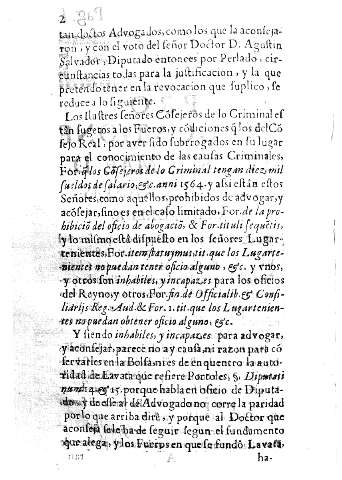 2
tan doctos Advogados, como los que la aconseja-
ron, y con el voto del señor Doctor D. Agustin
Salvador, Diputado entonces por Perlado, cir-
cunstancias todas para la justificacion, y la que
pretendo tener en la revocacion que suplico, se
reduce a lo siguiente.
Los Ilustres señores Cõsejeros de lo Criminal es
tàn sugetos a los Fueros, y condiciones q̃ los del Cõ
sejo Real; por aver sido subrogados en su lugar
para el conocimiento de las causas Criminales,
For. q̃ los Cõsejeros de lo Criminal tengan diez mil
sueldos de salario, &c. anni 1564. y assi estàn estos
Señores, como aquellos, prohibidos de advogar, y
acõsejar, sino es en el caso limitado, For. de la pro-
hibiciõ del oficio de abogaciõ, & For. tituli sequẽtis,
y lo mismo està dispuesto en los señores Lugar-
tenientes, For. item statuymus, tit. que los Lugarte-
nientes no puedan tener oficio alguno, &c. y vnos,
y otros son inhabiles, y incapazes para los oficios
del Reyno, y otros, For. fin de Officialib. & Consi-
liarijs Reg. Aud. & For. 1. tit. que los Lugartenien-
tes no puedan obtener oficio alguno, &c.
Y siendo inhabiles, y incapazes para advogar,
y aconsejar, parece no ay causa, ni razon para cõ
servarles en la Bolsa, ni es de enquentro la auto-
ridad de Lavata que refiere Portoles, §. Diputati
num. 14. & 15. porque habla en oficio de Diputa-
do, y de esse al de Advogado no corre la paridad
por lo que arriba dirè, y porque al Doctor que
aconseja se le ha de seguir segun el fundamento
que alega, y los Fueros en que se fundò Lavata,
A
ha-